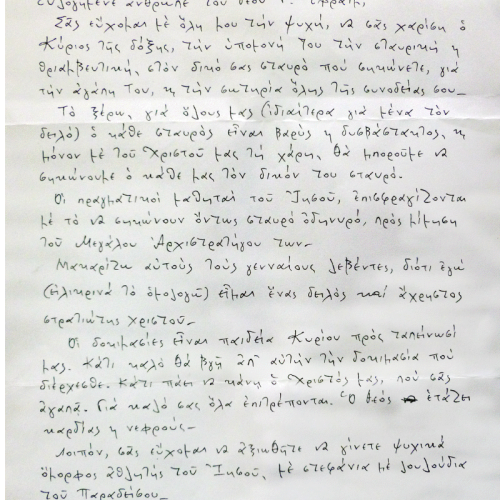 εὐλογημένε ἄνθρωπε τοῦ Θεοῦ π. Ἐφραίμ,
Σᾶς εὔχομαι μέ ὅλη μου τήν ψυχή, νά σᾶς χαρίση ὁ
Κύριος τῆς δόξης, τήν ὑπομονή του τήν σταυρική κ
θριαμβευτική, στόν δικό σας σταυρό πού σηκώνετε, γιά
τήν ἀγάπη Του, κ τήν σωτηρία ὅλης τῆς συνοδείας σου_
Τό ξέρω, γιά ὅλους μας (ἰδιαίτερα γιά μένα τόν
δειλό) ὁ κάθε σταυρός εἶναι βαρύς κ δυσβάστακτος, κ
μόνον μέ τοῦ Χριστοῦ μας τή χάρη, θά μποροῦμε νά
σηκώνουμε ὁ κάθε μας τόν δικόν του σταυρό.
Οἱ πραγματικοί μαθηταί τοῦ Ἰησοῦ, ἐπισφραγίζονται
μέ τό νά σηκώνουν ὄντως σταυρό ὀδυνηρό, πρός μίμηση
τοῦ Μεγάλου Ἀρχιστρατήγου των_
Μακαρίζω αὐτούς τούς γενναίους λεβέντες, διότι ἐγώ
(εἰλικρινά τό ὁμολογῶ) εἶμαι ἕνας δειλός καί ἄχρηστος
στρατιώτης Χριστοῦ_
Οἱ δοκιμασίες εἶναι παιδεία Κυρίου πρός ταπείνωσί
μας. Κάτι καλό θά βγῆ ἀπ' αὐτήν τήν δοκιμασία πού
διέρχεσθε. Κάτι πάει νά κάνη ὁ Χριστός μας, πού σᾶς
ἀγαπᾶ. Γιά καλό σας ὅλα ἐπιτρέπονται. Ὁ Θεός ἐτάζει
καρδίας κ νεφρούς_
Λοιπόν, σᾶς εὔχομαι νά ἀξιωθῆτε νά γίνετε ψυχικά
ὄμορφος ἀθλητής τοῦ Ἰησοῦ, μέ στεφάνια μέ λουλούδια
τοῦ Παραδείσου_